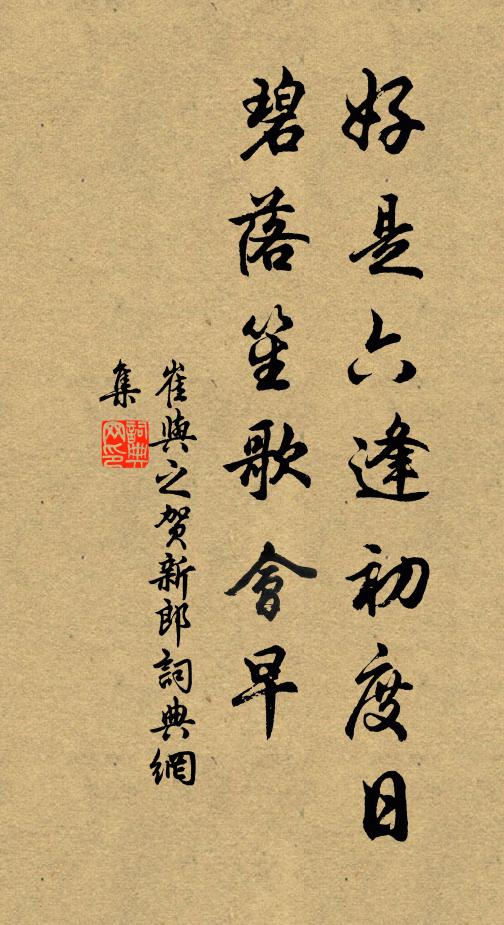 好是六逢初度日
碧落笙歌會早
崔與之賀新郎詞典網
集
詞典网印